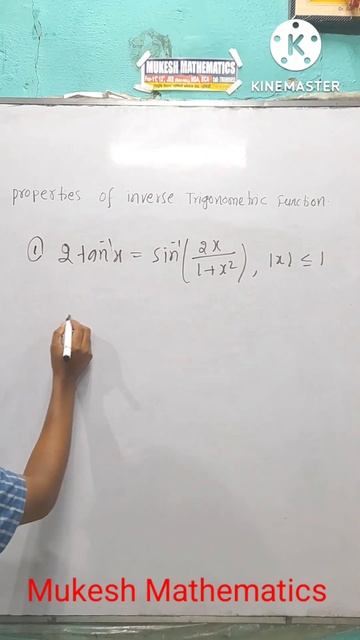 MUKESH MATHEMATICS
KINEMASTER
properties of inverse Trigonometric Function.
① 2 tan⁻¹x = sin⁻¹(2x/(1+x²)), |x| ≤ 1
Mukesh Mathematics